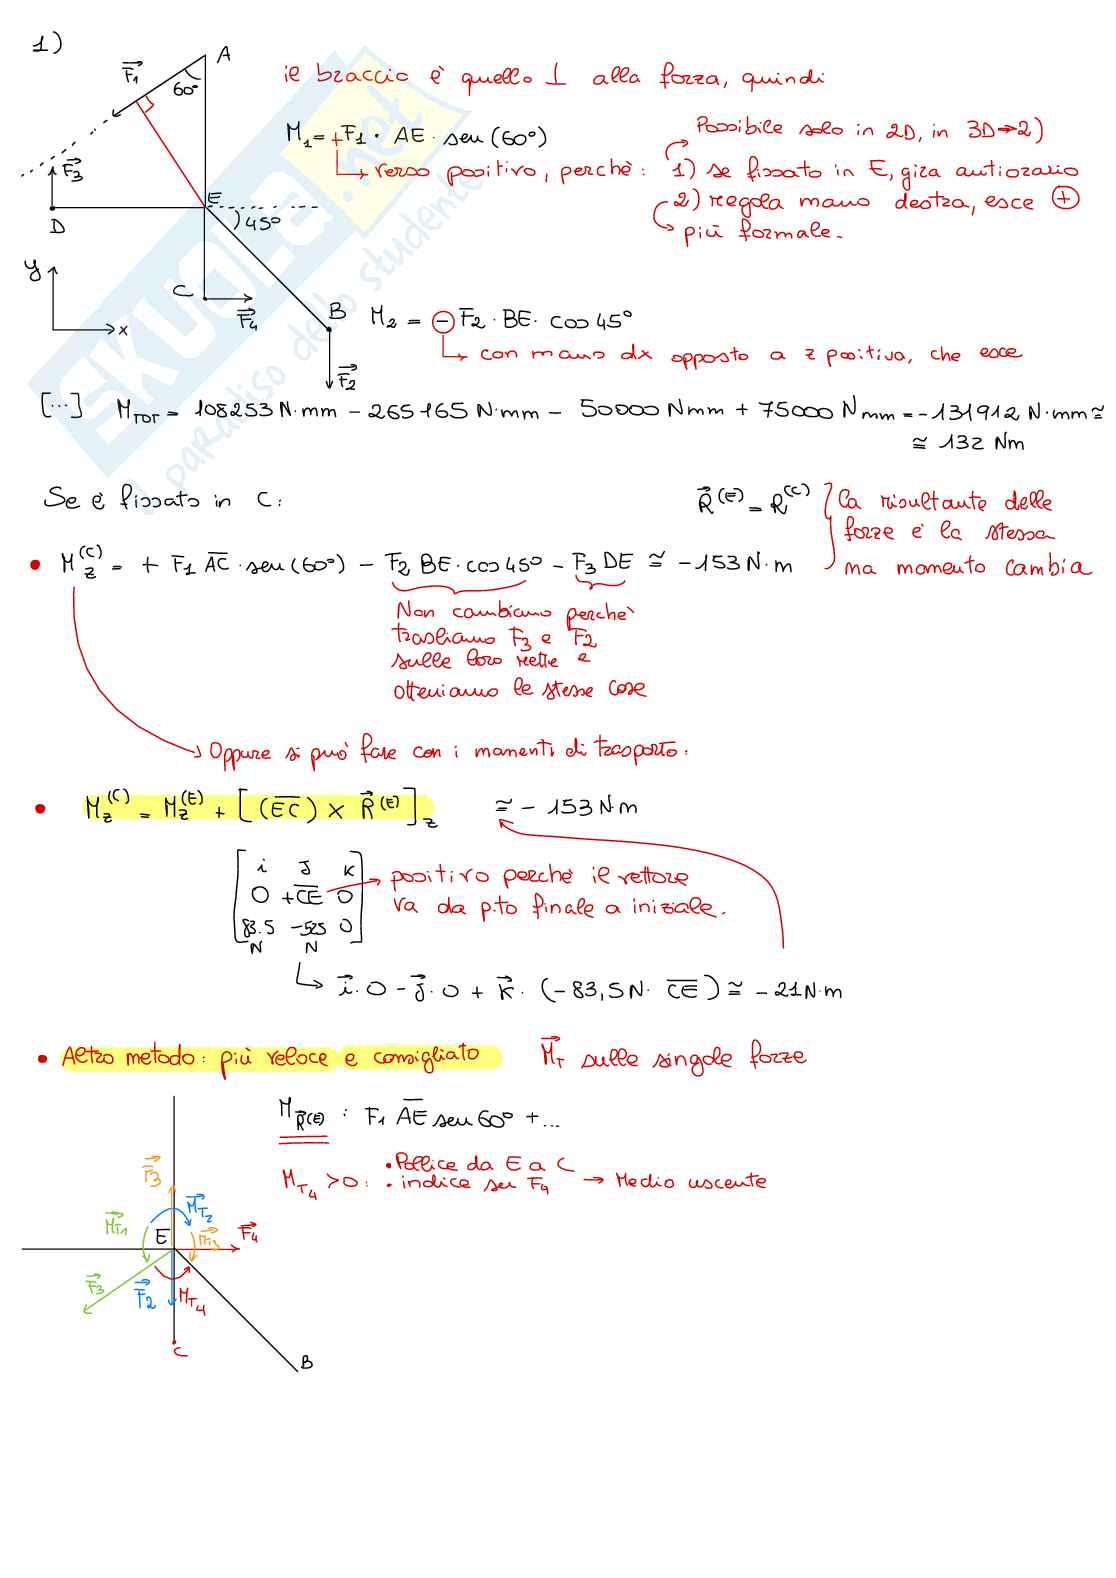 1)
A
F₁
60°
F₃
D
E
45°
C
F₄
B
F₂
y
x
SKUOLA.net
il paradiso dello studente
il braccio è quello ⊥ alla forza, quindi
M₁ = +F₁ · AE · sen(60°)
Possibile solo in 2D, in 3D → 2)
verso positivo, perchè: 1) se fissato in E, gira antiorario
2) regola mano destra, esce ⊕
più formale.
M₂ = −F₂ · BE · cos45°
con mano dx opposto a z positiva, che esce
[...] M_TOT = 108253 N·mm − 265165 N·mm − 50000 Nmm + 75000 Nmm = −131912 N·mm ≅
≅ 132 Nm
Se è fissato in C:
R⃗^(E) = R^(C)
la risultante delle
forze è la stessa
ma momento cambia
• M_z^(C) = + F₁ AC · sen(60°) − F₂ BE · cos45° − F₃ DE ≅ −153 N·m
Non cambiano perchè
trasliamo F₃ e F₂
sulle loro rette e
otteniamo le stesse cose
Oppure si può fare con i momenti di trasporto:
• M_z^(C) = M_z^(E) + [(EC) × R⃗^(E)]_z ≅ −153 N m
i J K
0 +CE 0
83.5 −525 0
N N
positivo perchè il vettore
va da p.to finale a iniziale.
i⃗·0 − J⃗·0 + K⃗·(−83,5N · CE) ≅ −21 N·m
• Altro metodo: più veloce e consigliato M⃗_T sulle singole forze
M_R⃗(E) : F₁ AE sen60° + ...
M_T₄ > 0: • Pollice da E a C
• indice su F₄ → Medio uscente
F₃
M_T₂
M_T1
E
M_T3
F₄
F₃
F₂
M_T₄
C
B